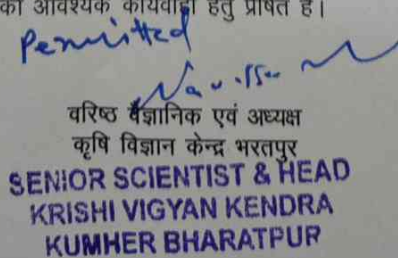 को आवश्यक कार्यवाही हेतु प्रेषित है।
Permitted
वरिष्ठ वैज्ञानिक एवं अध्यक्ष
कृषि विज्ञान केन्द्र भरतपुर
SENIOR SCIENTIST & HEAD
KRISHI VIGYAN KENDRA
KUMHER BHARATPUR